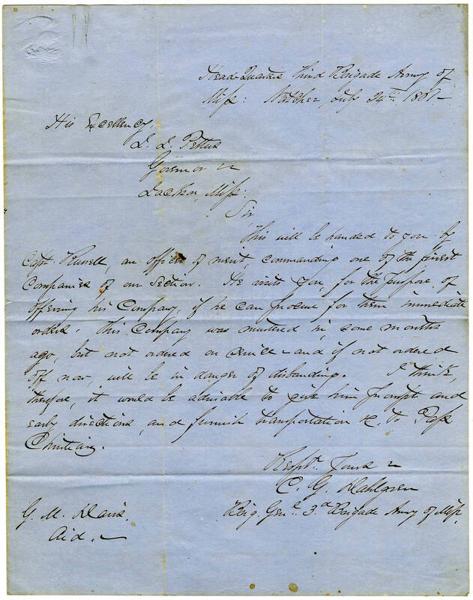 Head Quarters third Brigade Army of
Miss: Natchez, July 24th 1861
His Excellency,
J. J. Pettus
Governor
Jackson Miss:
Sir
This will be handed to you by
Capt, an officer of merit commanding one of the finest
Companies of our Section. He visits you, for the purpose of
offering his Company, if he can procure for them immediate
orders. This Company was mustered in, some months
ago, but not ordered on service – and if not ordered
off now, will be in danger of disbanding. I think,
therefore, it would be advisable to give him prompt and
early directions, and furnish transportation &c. to Pass
Christian.
Respt. Yours
C. G. Dahlgren
Brig. Genl. 3d Brigade Army of Miss.
G. M. Davis
Aid.